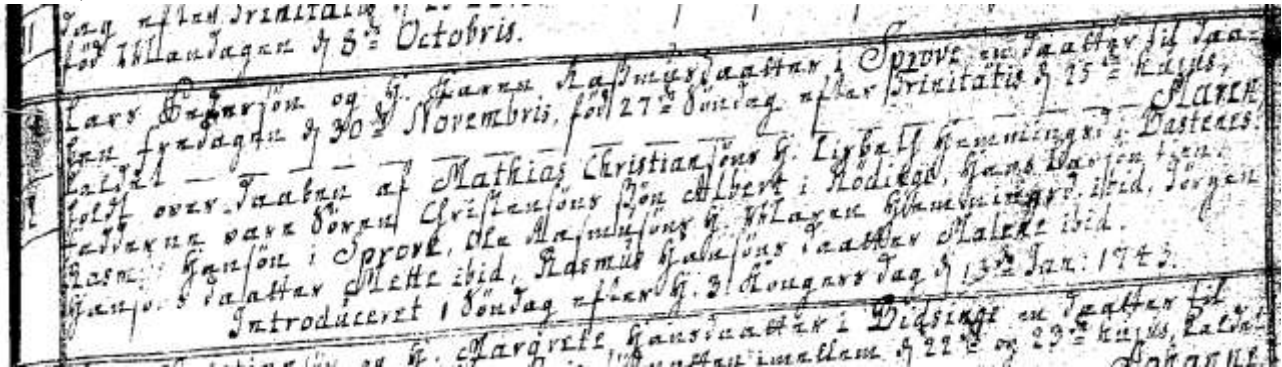 dag efter Trinitatis d 
fød Mandagen d 8de Octobris.
Lars Pedersøn og H. Karen Rasmusdaatter i Sprove en Daatter til Daa-
ben fredagen d 30te Novembris, fød 27de Søndag efter Trinitatis d 25de hujus,
kaldet — — — — — — — — Maren
holdt over Daaben af Mathias Christiansøns H. Lisbeth Hemmingsd: i Bastenes.
fadderne vare Søren Christensøns Søn Albert i Rødinge, Hans
Rasm: Hansøn i Sprove, Ole Rasmusøns H. Maren Hemmingsd: ibid, Jørgen
Hanss: s Daatter Mette ibid, Rasmus Hansøns Daatter Malene ibid.
Introduceret 1 Søndag efter H. 3 Kongers dag d 13de Jan: 1743.
og H. Margrete Hansdaatter i Vidsinge en Daatter til
Natten imellem d 22de og 23de hujus, kaldet
Johanne